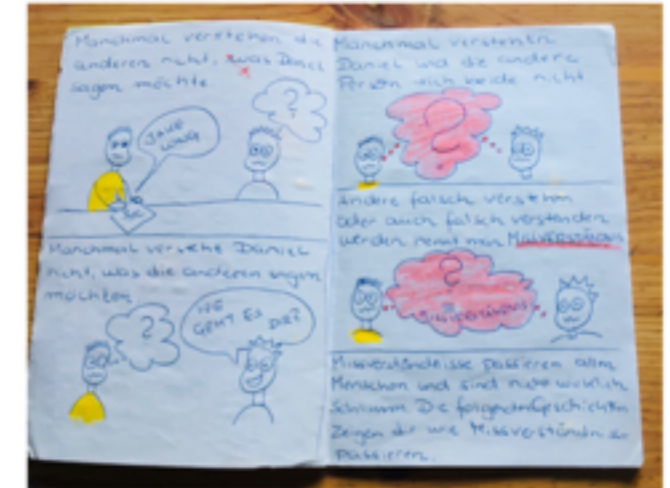 Manchmal verstehen die
anderen nicht, was Daniel
sagen möchte
?
Manchmal verstehe Daniel
nicht, was die anderen sagen
möchten
?
WIE
GEHT ES DIR?
Manchmal verstehen
Daniel und die andere
Person sich beide nicht
?
Andere falsch verstehn
oder auch falsch verstanden
werden nennt man
?
Missverständnisse passieren allen
Menschen und sind nicht wirklich
schlimm. Die folgenden Geschichten
zeigen dir wie Missverständnisse
passieren.